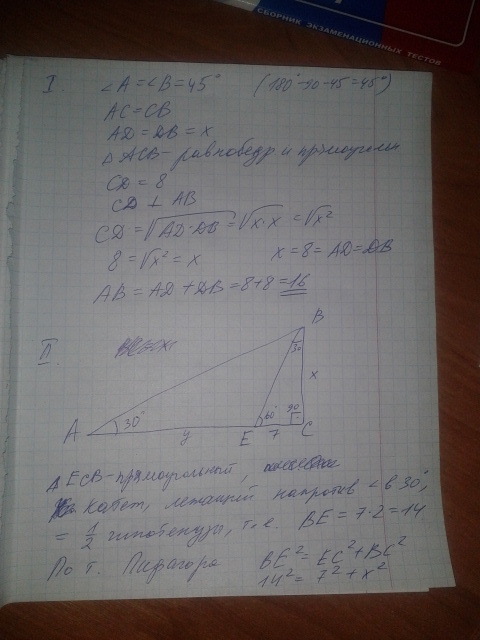 СБОРНИК ЭКЗАМЕНАЦИОННЫХ ТЕСТОВ
I ∠A = ∠B = 45° (180°-90-45=45°)
AC = CB
AD = DB = x
△ACB - равнобедр и прямоугольн
CD = 8
CD ⊥ AB
CD = √AD·DB = √x·x = √x²
8 = √x² = x x = 8 = AD = DB
AB = AD + DB = 8+8 = 16
II.
B
30
x
A 30° y E 60° 7 90 C
△ECB - прямоугольный,
Катет, лежащий напротив ∠ в 30°,
= 1/2 гипотенузы, т.е. BE = 7·2 = 14.
По т. Пифагора BE² = EC² + BC²
14² = 7² + x²